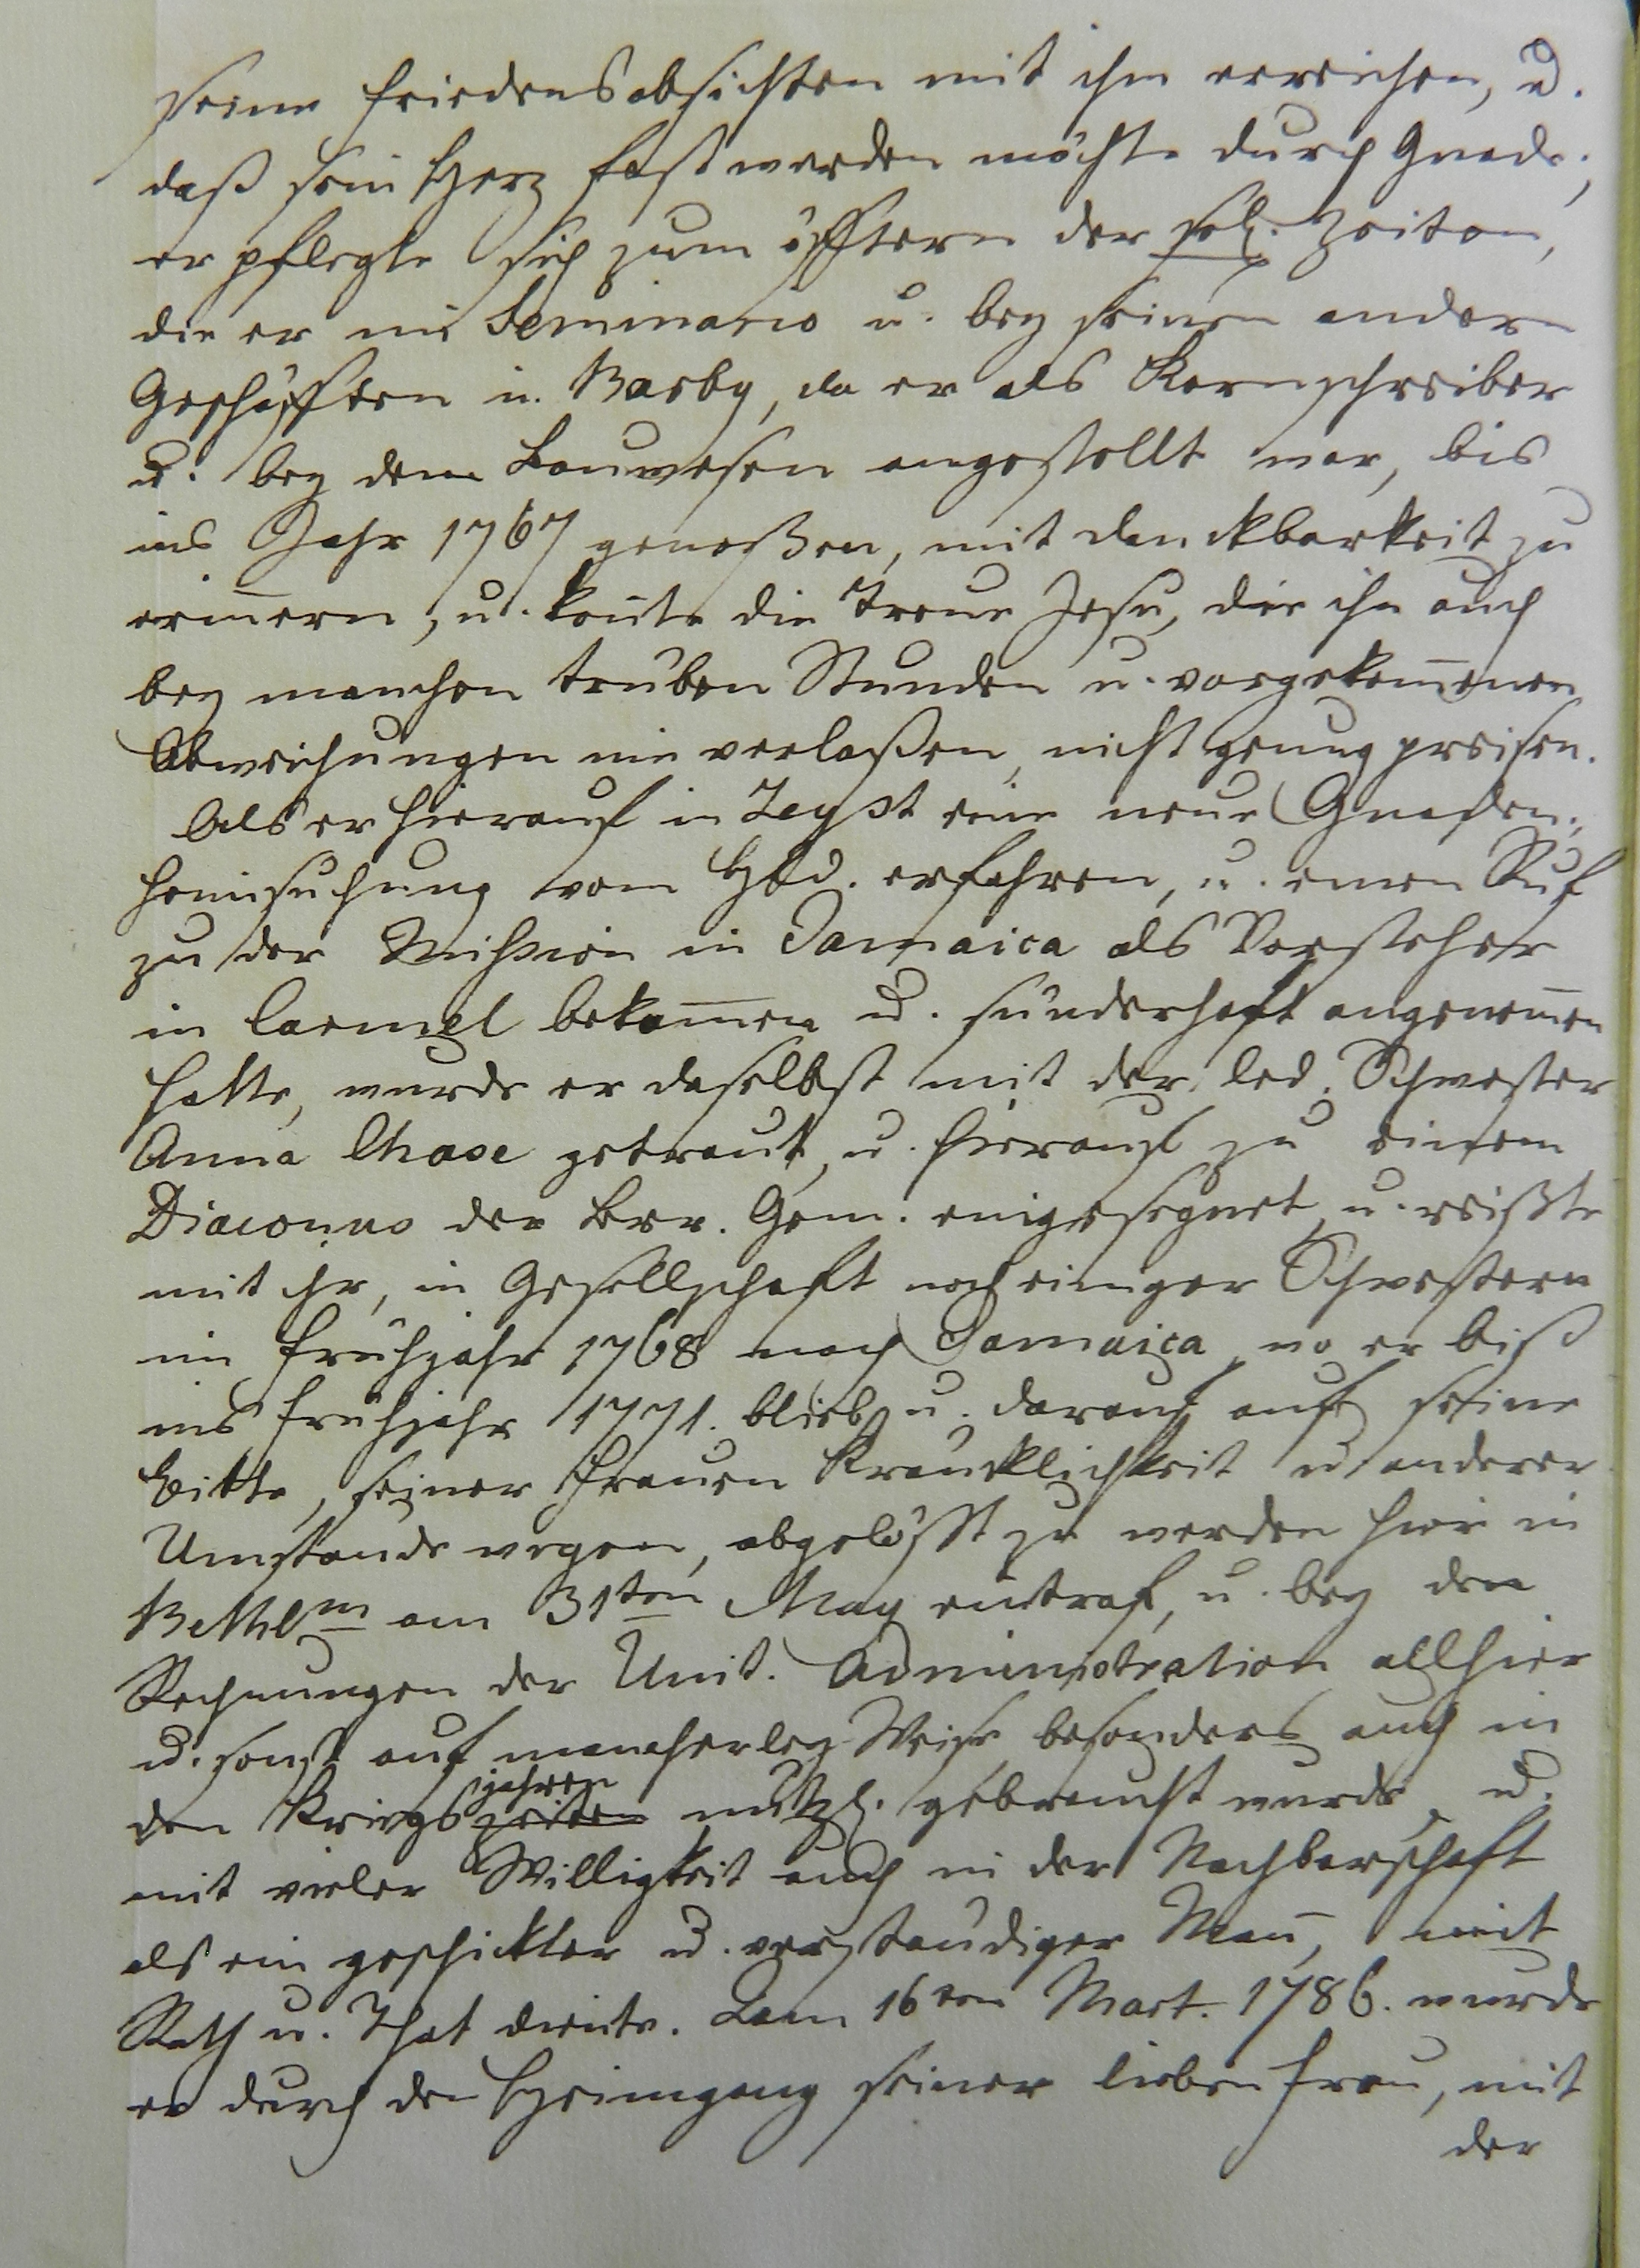 seine Friedensabsichten mit ihm erreichen, u.
daß sein Herz fest werden möchte durch Gnade;
er pflegte sich zum öfftern der sel. Zeiten,
die er im Seminario u. bey seinen andern
Geschäfften in Barby, da er als Kornschreiber
u. bey dem Bauwesen angestellt war, bis
ins Jahr 1767 genoßen, mit danckbarkeit zu
eriñern, u. konte die Treue Jesu, die ihn auch
bey manchen truben Stunden u. vorgekom̅enen
Abweichungen nie verlaßen, nicht genug preisen.
Als er hierauf in Zeyst eine neue Gnaden-
heimsuchung vom Hld. erfahren, u. einen Ruf
zu der Mission in Jamaica als Vorsteher
in Carmel bekom̅en u. sünderhaft angenom̅en
hatte, wurde er daselbst mit der led. Schwester
Anna Chase getraut, u. hierauf zu einem
Diaconus der Brr. Gem. eingesegnet, u. reißte
mit ihr, in Gesellschaft noch einiger Schwestern
im Frühjahr 1768 nach Jamaica, wo er biß
ins Frühjahr 1771. blieb, u. darauf auf seine
Bitte, seiner Frauen Kräncklichkeit u. anderer
Umstände wegen, abgelößt zu werden hier in
Bethlm am 31ten May eintraf, u. bey den
Rechnungen der Unit. Administration allhier
u. sonst auf mancherley Weise besonders auch in
den Kriegs zeiten jahren nützl. gebraucht wurde, u.
mit vieler Willigkeit auch in der Nachbarschaft
als ein geschickter u. verständiger Mañ, mit
Rath u. That diente. Dem 16ten Mart. 1786. wurde
er durch den Heimgang seiner lieben Frau, mit
der